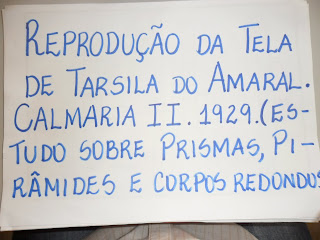 REPRODUÇÃO DA TELA
DE TARSILA DO AMARAL.
CALMARIA II. 1929.(ES-
TUDO SOBRE PRISMAS, PI-
RÂMIDES E CORPOS REDONDOS